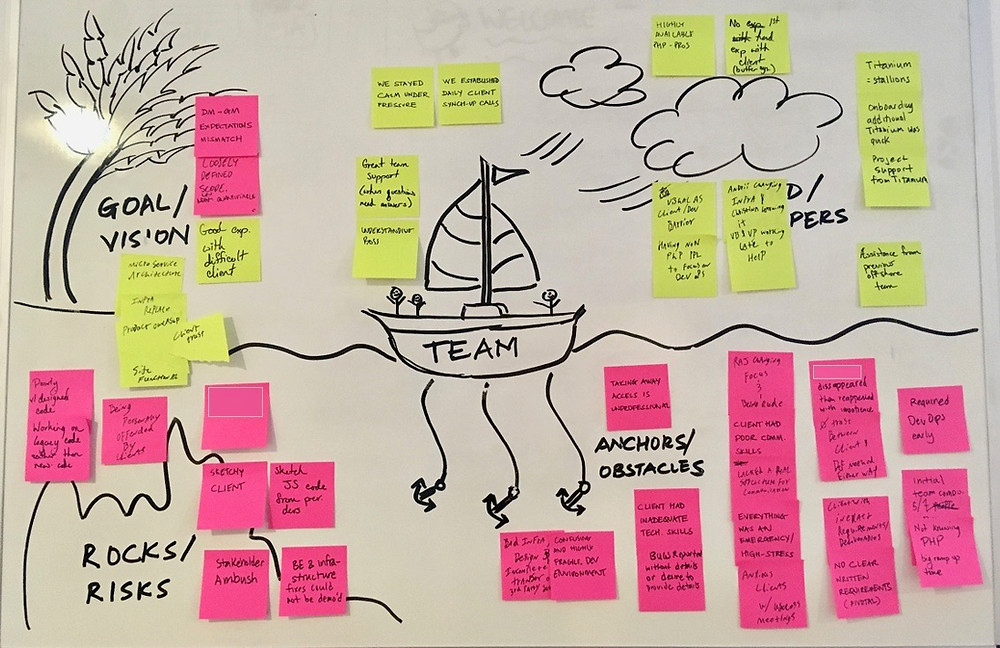 DM-GM
EXPECTATIONS
MISMATCH
LOOSELY
DEFINED
SCOPE.
GOAL/
VISION
Good exp.
with
difficult
client
MICRO SERVICE
ARCHITECTURE
INFRA
REPLACE
PRODUCT OWNERSHIP
Client
trust
Site
WE STAYED
CALM UNDER
PRESSURE
WE ESTABLISHED
DAILY CLIENT
SYNCH-UP CALLS
Great team
support
(when questions
need answers)
UNDERSTANDING
BOSS
HIGHLY
AVAILABLE
PHP-PROS
No exp. 1st
hand
exp with
client
Titanium
= stallions
Onboarding
additional
Titanium was
quick
Project
support
from Titanium
AS
Client/Dev
Barrier
Having non
PHP
to focus on
Dev
changing
INFRA &
learning
it
VB & VP working
late to
HELP
D/
PERS
Assistance from
previous
offshore
team
TEAM
Poorly
designed
code
Working on
legacy code
rather than
new code
Being
Personally
Offended
By
Clients
SKETCHY
CLIENT
Sketch
JS code
from prev.
devs
ROCKS/
RISKS
Stakeholder
Ambush
BE & infra-
structure
fixes could
not be demo'd
TAKING AWAY
ACCESS IS
UNPROFESSIONAL
ANCHORS/
OBSTACLES
Bad Infra
Design &
Incomplete
transfer of
3rd Party
CONFUSING
AND HIGHLY
FRAGILE, DEV
ENVIRONMENT
CLIENT HAD
INADEQUATE
TECH. SKILLS
BUGS Reported
without details
or desire to
provide details.
changing
Focus
Being Rude
CLIENT HAD
POOR COMM.
SKILLS
LACKED A REAL
STRUCTURE FOR
COMMUNICATION
EVERYTHING
WAS AN
EMERGENCY/
HIGH-STRESS
Clients
w/ useless
meetings
disappeared
then reappeared
with impatience
trust
Between
Client &
Either WAY
Client with
inexact
Requirements/
NO CLEAR
WRITTEN
REQUIREMENTS
(PIVOTAL)
Required
DevOps
early
Initial
team comp.
Not knowing
PHP
big ramp up
time